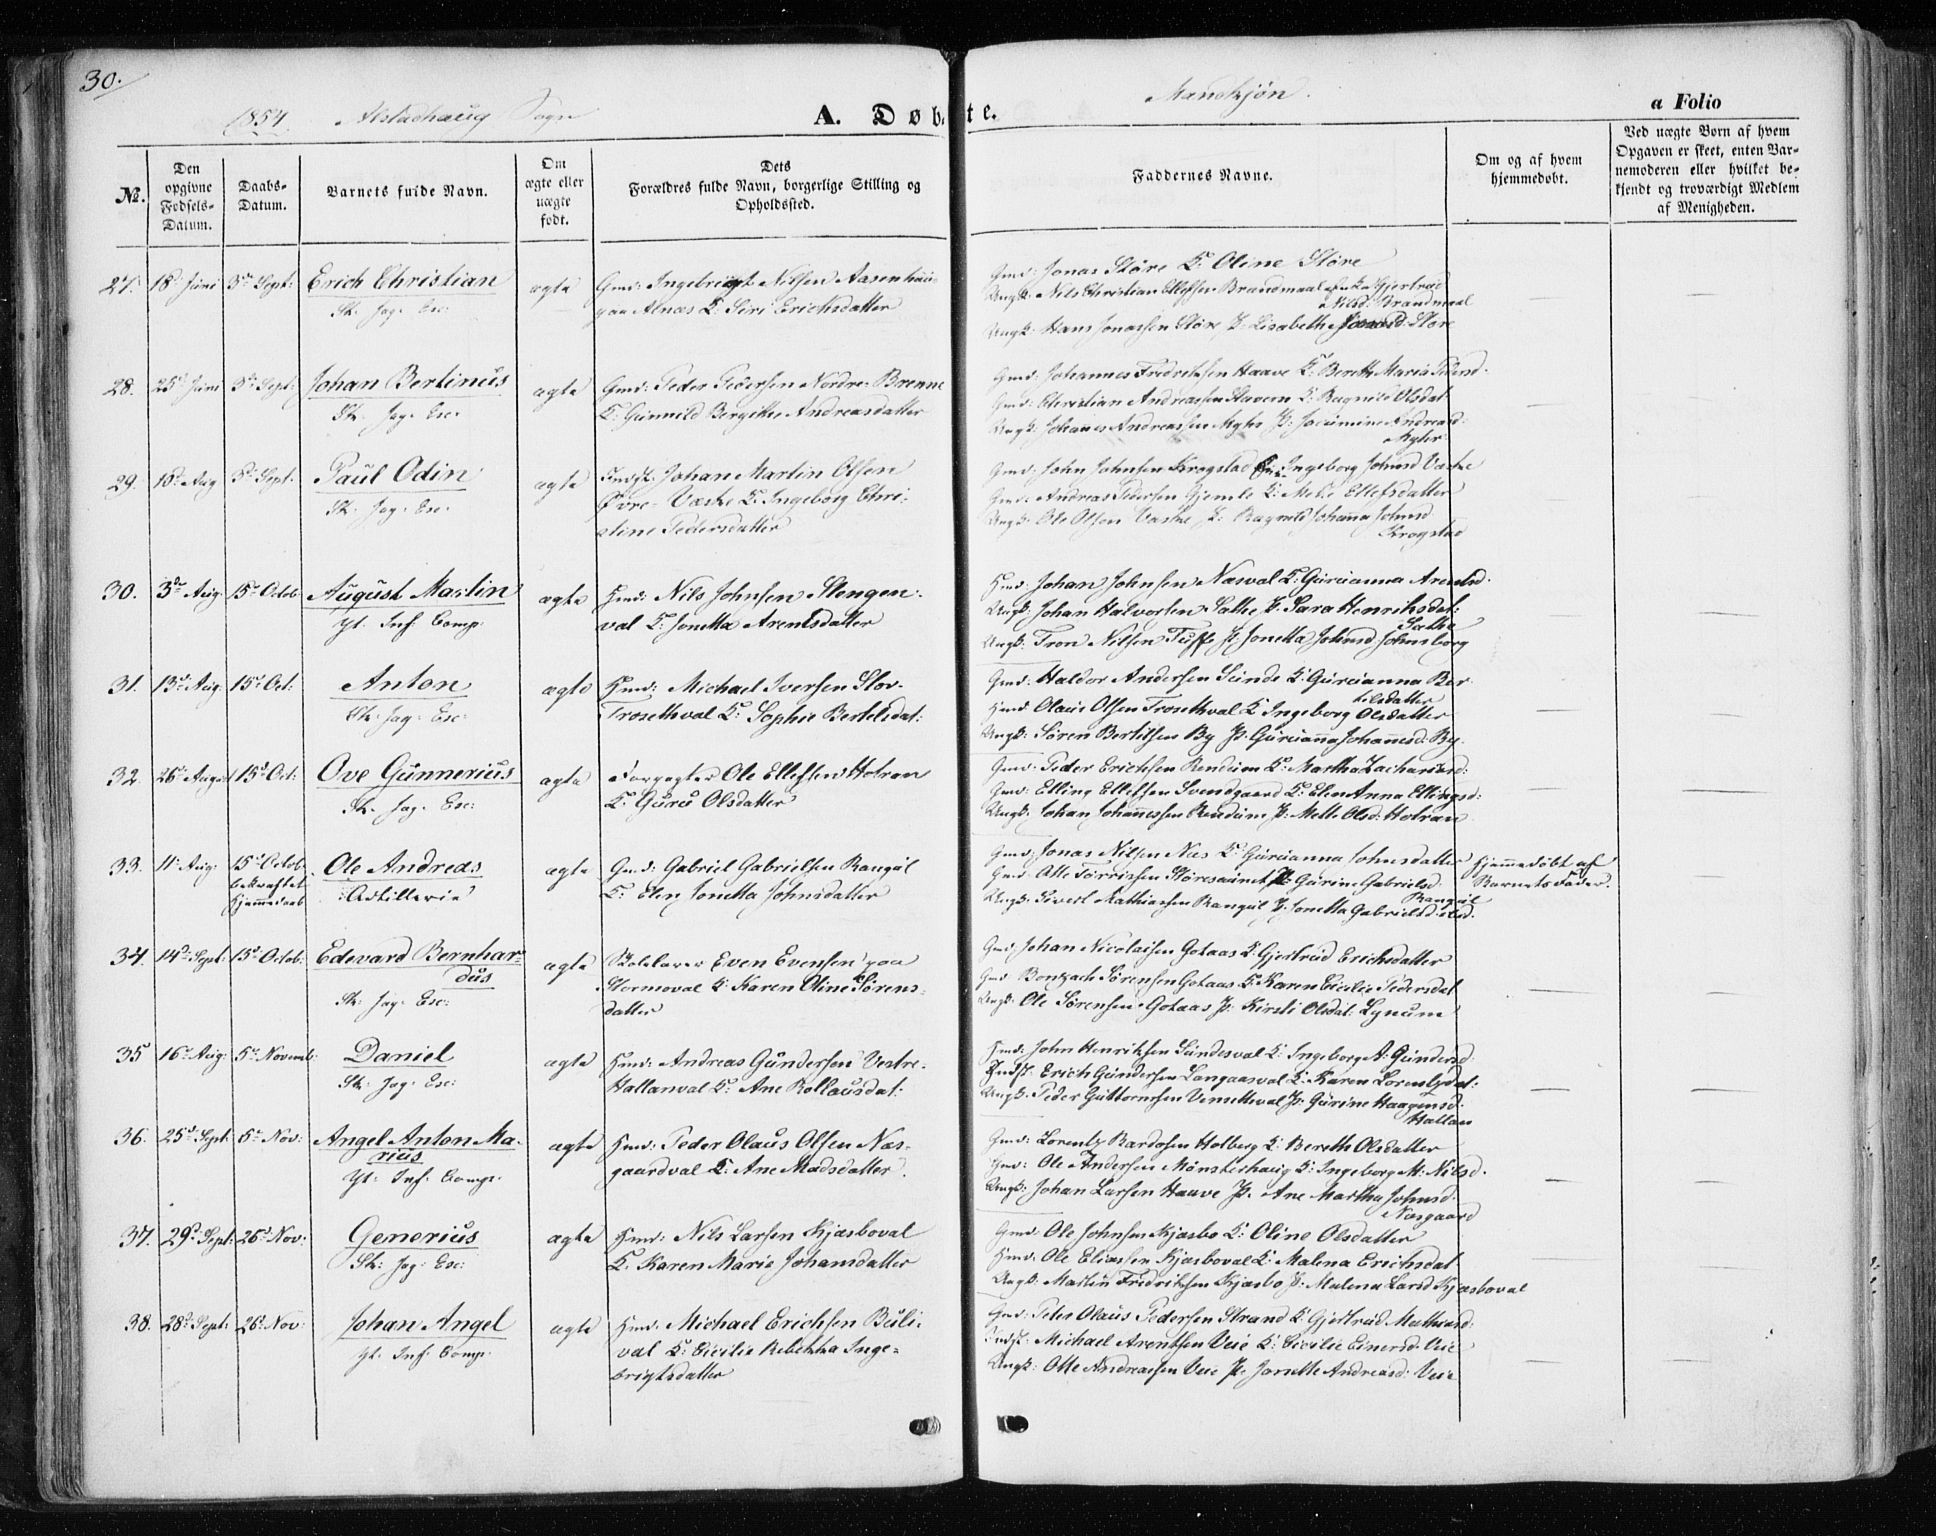 30.
1854 Alstadhaug Sogn
A. Døbte.
Mandkjøn.
a Folio
No.
Den opgivne Fødsels-Datum.
Daabs-Datum.
Barnets fulde Navn.
Om ægte eller uægte født.
Dets Forældres fulde Navn, borgerlige Stilling og Opholdssted.
Faddernes Navne.
Om og af hvem hjemmedøbt.
Ved uægte Børn af hvem Opgaven er skeet, enten Barnemoderen eller hvilket bekjendt og troværdigt Medlem af Menigheden.
27. 18d Juni 3die Sept: Erich Christian ægte Gmd: Ingebrigt Nilsen Aasenhaug
Sk. Jag. Esc: paa Alnæs K. Siri Erichsdatter
Gmd: Jonas Støre K. Oline Støre
Ungk: Nils Christian Ellefsen Brandmaal P. Gjertrud
Nilsd: Brandmaal
Ungk: Hans Jonassen Støre P. Lisabeth Jonasd: Støre
28. 25d Juni 3die Sept: Johan Bertinus ægte Gmd: Peder Pedersen Nordre-Brenne
Sk. Jag. Esc. K: Gunnild Bergitte Andreasdatter
Gmd: Johannes Fredriksen Haave K: Bereth Maria Pedersd.
Gmd: Christian Andreassen Stavern K: Ragnild Olsdat
Ungk: Johanes Andreassen Myhr P: Jacumine Andreasd:
Myhr
29. 18d Aug 3d Sept: Paul Odin ægte Indst: Johan Martin Olsen
Sk. Jag. Esc. Øvre-Væske K. Ingeborg Chri-
stine Pedersdatter
Gmd: John Johnsen Krogstad K: Ingeborg Johnsd Væske
Gmd: Andreas Pedersen Gjemle K: Mette Ellefsdatter
Ungk: Ole Olsen Væske P: Ragnild Johanna Johnsd
Krogstad
30. 3de Aug 15d Octob August Martin ægte Hmd: Nils Johnsen Stengen-
Yt. Inf. Comp. val K: Jonetta Arentsdatter
Hmd: Johan Johnsen Næsval K: Gurianna Arentsd.
Ungk: Johan Halvorsen Sathe P. Sara Henrichsdat:
Sathe
Ungk: Tron Nilsen Tuff P: Jonetta Johnsd Johnsborg
31. 13d Aug: 15d Oct: Anton ægte Hmd: Michael Iversen Slov-
Sk: Jag: Esc: Trosethval K: Sophie Bertelsdat:
Gmd: Haldor Andersen Sunde K: Gurianna Ber-
telsdatter
Hmd: Olaus Olsen Trosethval K: Ingeborg Olsdatter
Ungk: Søren Bertelsen By P: Gurianna Johannesd: By
32. 26d August 15d Oct: Ove Gunnerius ægte Forpagter Ole Ellefsen Holran
Sk. Jag. Esc: K. Guru Olsdatter
Gmd: Peder Erichsen Rendum K: Martha Zachariasd:
Gmd: Elling Ellefsen Svendgaard K: Elen Anna Ellingsd:
Ungk: Johan Johannessen Rendum P. Mette Olsd: Holran
33. 11d Aug: 15d Octob. Ole Andreas ægte Gmd: Gabriel Gabrielsen Rangul
bekræftet
Hjemmedaab
Artillerie K: Elen Jonetta Johnsdatter
Gmd: Jonas Nilsen Næs K: Gurianna Johnsdatter
Gmd: Otte Torrisen Støresaunet P: Gurine Gabrielsd.
Rangul
Ungk: Sivert Mathiassen Rangul P. Jonetta Gabrielsd ibid.
Hjemmedøbt af
Barnets Fader.
34. 14d Sept: 15d Octob: Edevard Bernhar-
dus
Sk: Jag: Esc:
ægte Skolelærer Even Evensen paa
Stormoval K: Karen Oline Sørens-
datter
Gmd: Johan Nicolaisen Gotaas K: Gjertrud Erichsdatter
Gmd Bonsach Sørensen Gotaas K: Karen Cicilie Pedersdat
Ungk: Ole Sørensen Gotaas P: Kirsti Olsdat: Lynum
35 16d Aug: 5te Novemb: Daniel ægte Hmd: Andreas Gundersen Vestre-
Sk: Jag: Esc: Hallanval K: Ane Rollausdat:
Hmd: John Henriksen Sundesval K: Ingeborg A: Gundersd:
Indst: Erich Gundersen Langaasval K: Karen Lorentzdat:
Ungk: Peder Guttormsen Vensetheval P: Gurine Haagensd:
Hallan
36. 25d Sept: 5te Nov: Angel Anton Ma-
rius
Yt. Inf. Comp.
ægte Hmd: Peder Olaus Olsen Næs-
gaardval K: Ane Madsdatter.
Gmd: Lorentz Bardosen Holberg K: Bereth Olsdatter
Gmd: Ole Andersen Mønsterhaug K: Ingeborg M: Nilsd.
Ungk: Johan Larsen Haave P. Ane Martha Johnsd.
Næsgaard
37. 29d Sept: 26d Nov: Generius ægte Hmd: Nils Larsen Kjæsboval
Sk: Jag: Esc: K. Karen Marie Johansdatter
Gmd: Ole Johnsen Kjæsbo K: Oline Olsdatter
Hmd: Ole Eliassen Kjæsboval K: Malena Erichsdat
Ungk: Martin Fredriksen Kjæsbo P: Malena Larsd Kjæsboval
38. 28d Sept: 26d Nov: Johan Angel ægte Hmd: Michael Erichsen Buli-
Yt. Inf. Comp. val K: Cicilie Rebekka Inge-
brigtsdatter
Gmd: Peter Olaus Pedersen Strand K: Gjertrud Mathiasd:
Indst: Michael Arentsen Veie K: Cicilie Einersd. Veie
Ungk: Otte Andreassen Veie P. Jonette Andreasd: Veie